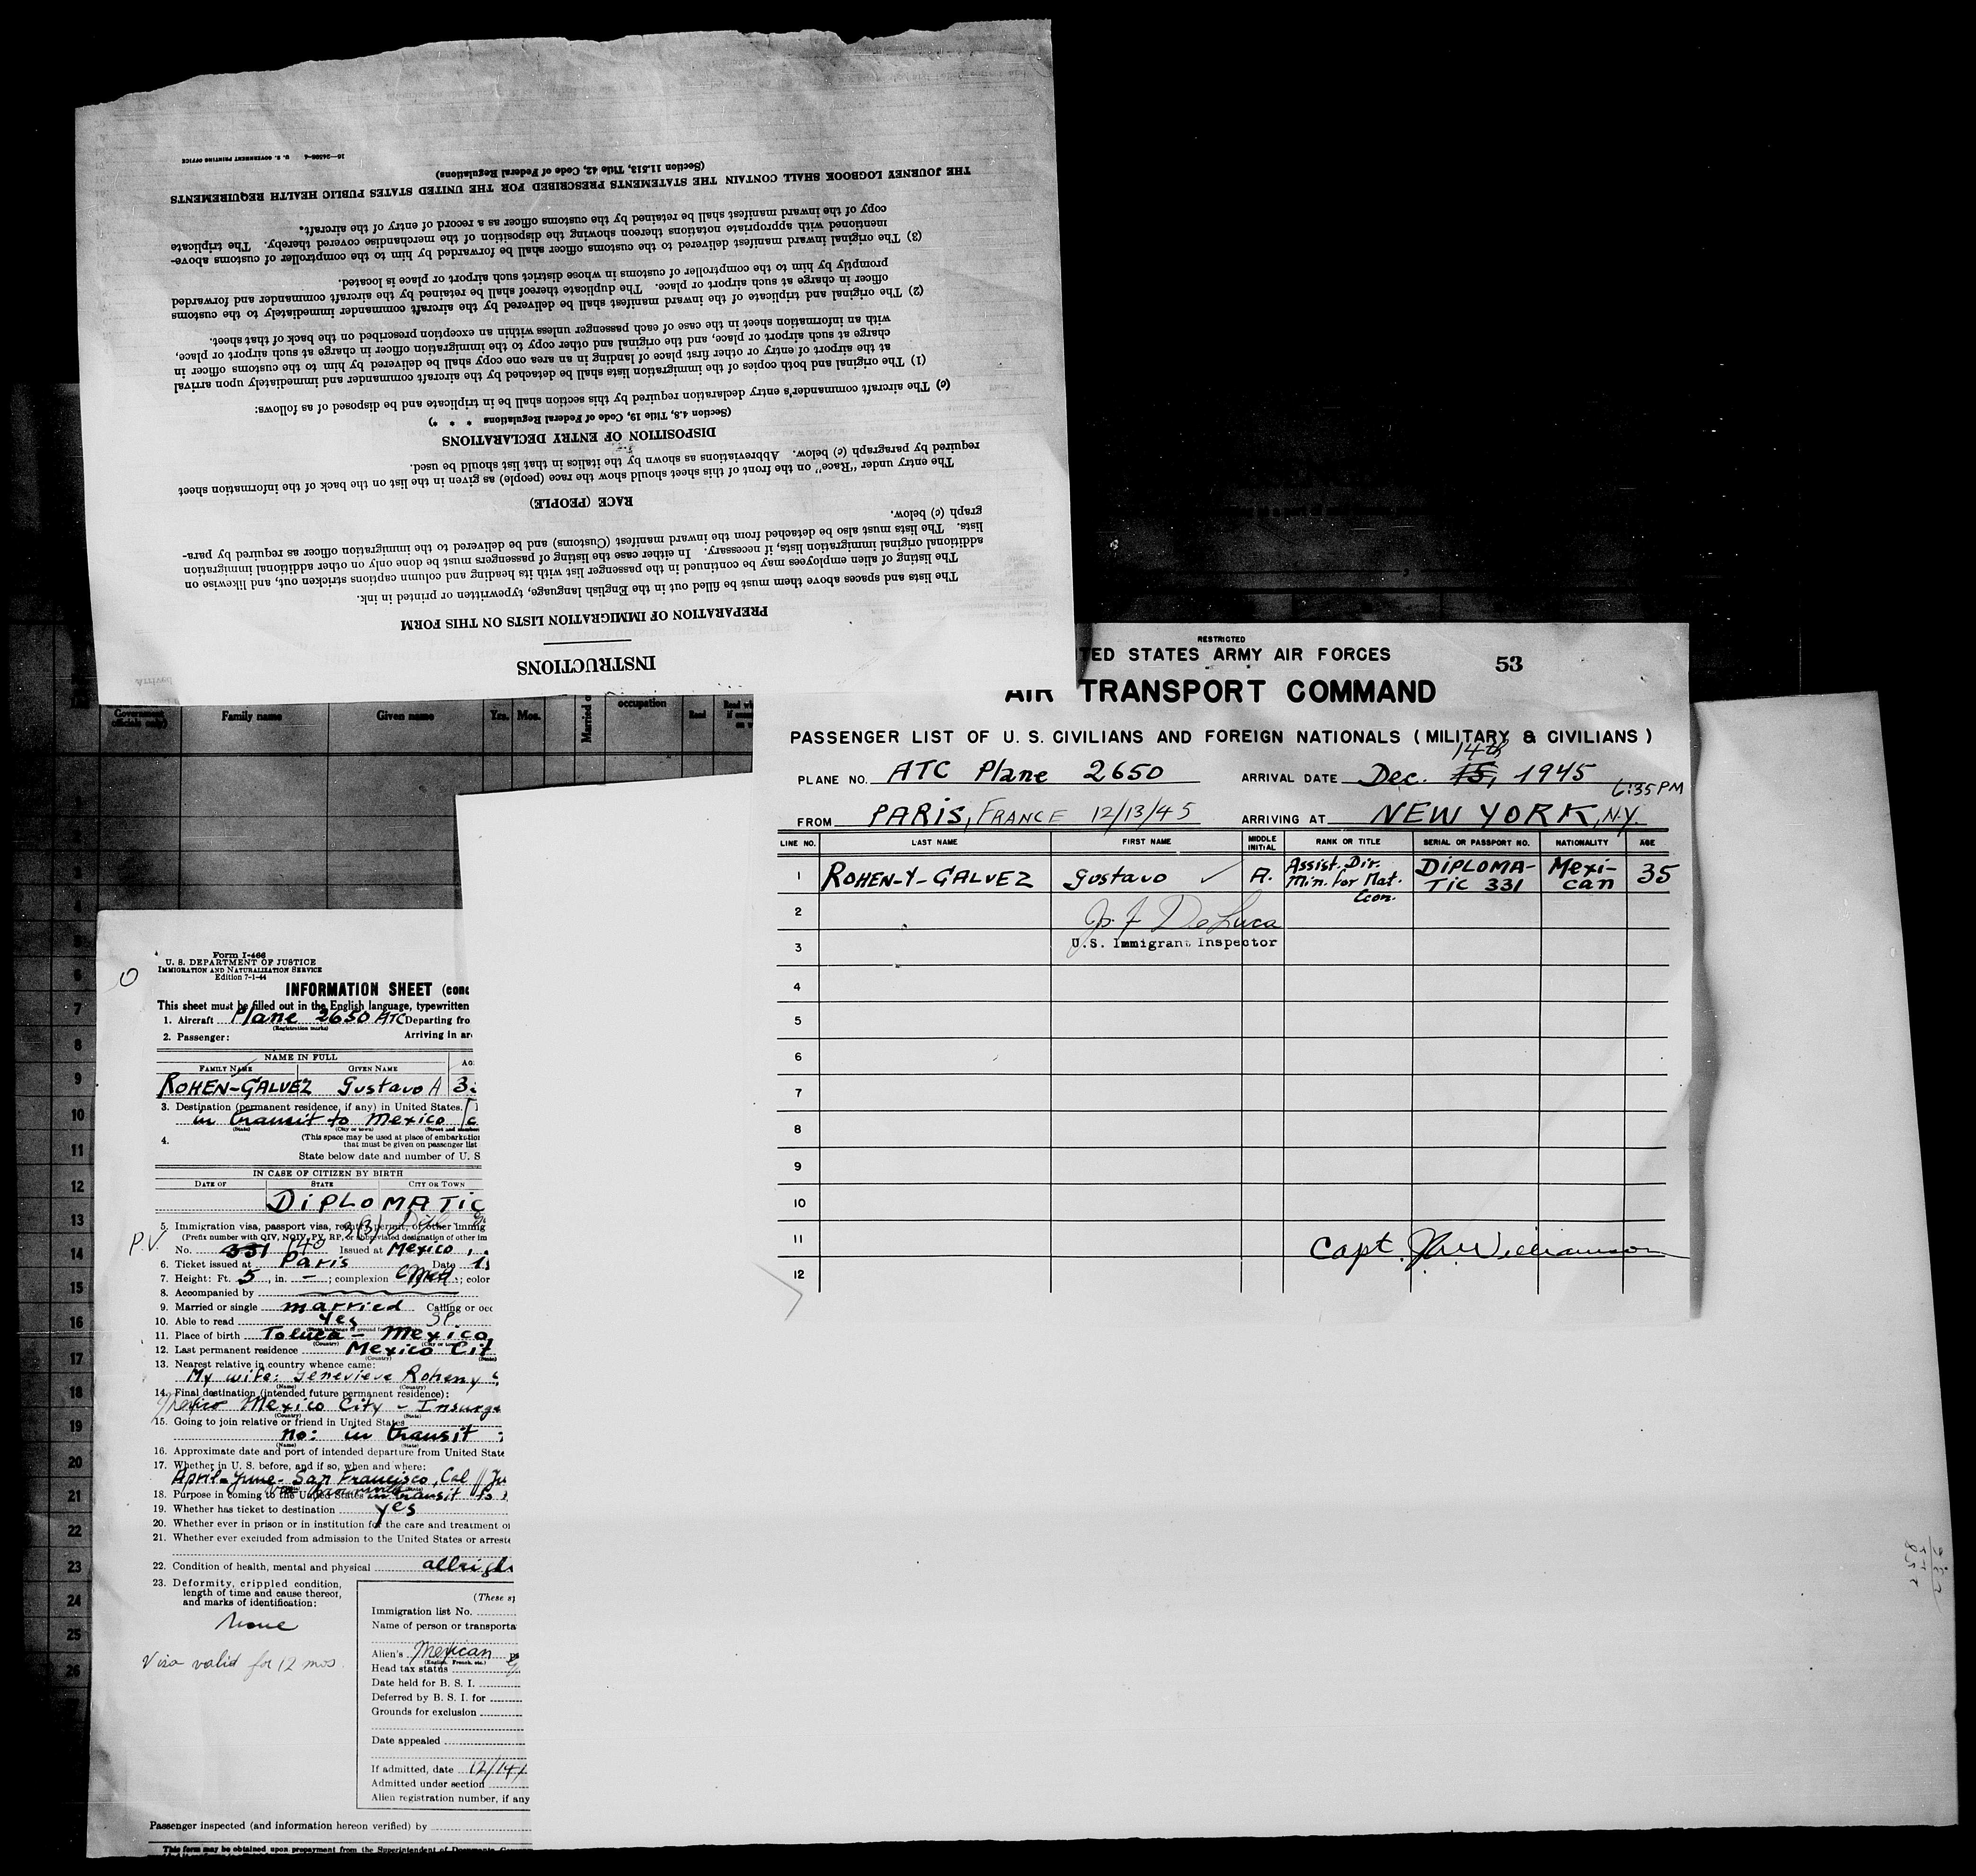 INSTRUCTIONS
PREPARATION OF IMMIGRATION LISTS ON THIS FORM
The lists and spaces above them must be filled out in the English language, typewritten or printed in ink.
The listing of alien employees may be continued in the passenger list with its heading and column captions stricken out, and likewise on
additional original immigration lists, if necessary. In either case the listing of passengers must be done only on other additional immigration
lists. The lists must also be detached from the inward manifest (Customs) and be delivered to the immigration officer as required by para-
graph (c) below.
RACE (PEOPLE)
The entry under "Race" on the front of this sheet should show the race (people) as given in the list on the back of the information sheet
required by paragraph (c) below. Abbreviations as shown by the italics in that list should be used.
DISPOSITION OF ENTRY DECLARATIONS
(Section 4.8, Title 19, Code of Federal Regulations * * *)
(c) The aircraft commander's entry declaration required by this section shall be in triplicate and be disposed of as follows:
(1) The original and both copies of the immigration lists shall be detached by the aircraft commander and immediately upon arrival
at the airport of entry or other first place of landing in an area one copy shall be delivered by him to the customs officer in
charge at such airport or place, and the original and other copy to the immigration officer in charge at such airport or place,
with an information sheet in the case of each passenger unless within an exception prescribed on the back of that sheet.
(2) The original and triplicate of the inward manifest shall be delivered by the aircraft commander immediately to the customs
officer in charge at such airport or place. The duplicate thereof shall be retained by the aircraft commander and forwarded
promptly by him to the comptroller of customs in whose district such airport or place is located.
(3) The original inward manifest delivered to the customs officer shall be forwarded by him to the comptroller of customs above-
mentioned with appropriate notations thereon showing the disposition of the merchandise covered thereby. The triplicate
copy of the inward manifest shall be retained by the customs officer as a record of entry of the aircraft.
THE JOURNEY LOGBOOK SHALL CONTAIN THE STATEMENTS PRESCRIBED FOR THE UNITED STATES PUBLIC HEALTH REQUIREMENTS
(Section 11.513, Title 42, Code of Federal Regulations)
U. S. GOVERNMENT PRINTING OFFICE
Arrived
Government officials only) Family name Given name Yrs. Mos. Married o occupation Read
RESTRICTED
TED STATES ARMY AIR FORCES 53
AIR TRANSPORT COMMAND
PASSENGER LIST OF U. S. CIVILIANS AND FOREIGN NATIONALS (MILITARY & CIVILIANS)
14th
PLANE NO. ATC Plane 2650 ARRIVAL DATE Dec. 15, 1945
6:35 PM
FROM PARIS, FRANCE 12/13/45 ARRIVING AT NEW YORK, N.Y.
LINE NO. LAST NAME FIRST NAME MIDDLE INITIAL RANK OR TITLE SERIAL OR PASSPORT NO. NATIONALITY AGE
1 ROHEN-Y-GALVEZ Gustavo A. Assist. Dir. Min. for Nat. Econ. DIPLOMA-TIC 331 Mexi-can 35
2 DeLuca
3 U.S. Immigrant Inspector
4
5
6
7
8
9
10
11 Capt. Williamson
12
Form I-466
U. S. DEPARTMENT OF JUSTICE
IMMIGRATION AND NATURALIZATION SERVICE
Edition 7-1-44
INFORMATION SHEET (conc
This sheet must be filled out in the English language, typewritten
1. Aircraft Plane 2650 ATC Departing fro
(Registration marks)
2. Passenger: Arriving in ar
NAME IN FULL
FAMILY NAME GIVEN NAME AG
ROHEN-GALVEZ Gustavo A 3
3. Destination (permanent residence, if any) in United States.
in transit to Mexico
(State) (City or town)
4. (This space may be used at place of embarkation
that must be given on passenger list
State below date and number of U. S
IN CASE OF CITIZEN BY BIRTH
DATE OF STATE CITY OR TOWN
DIPLOMATIC
5. Immigration visa, passport visa, reentry permit, or other immig
(Prefix number with QIV, NQIV, PV, RP, or abbreviated designation of other im
P.V. No. 331 140 Issued at Mexico,
6. Ticket issued at Paris Date
7. Height: Ft. 5, in. - ; complexion Med.; color
8. Accompanied by
9. Married or single married Calling or occ
10. Able to read Yes SP.
11. Place of birth Toluca - Mexico,
12. Last permanent residence Mexico Cit
13. Nearest relative in country whence came:
My wife: Genevieve Roheny
(Name) (Country)
14. Final destination (intended future permanent residence):
Mexico Mexico City - Insurge
(Country) (State)
15. Going to join relative or friend in United States
no: in transit
(Name) (State)
16. Approximate date and port of intended departure from United State
17. Whether in U. S. before, and if so, when and where:
April-June- San Francisco, Cal
18. Purpose in coming to the United States in transit to
19. Whether has ticket to destination yes
20. Whether ever in prison or in institution for the care and treatment o
21. Whether ever excluded from admission to the United States or arreste
22. Condition of health, mental and physical allrigh
23. Deformity, crippled condition,
length of time and cause thereof,
and marks of identification:
None
Visa valid for 12 mos.
(These s
Immigration list No.
Name of person or transporta
Alien's Mexican
(English, French, etc.)
Head tax status
Date held for B. S. I.
Deferred by B. S. I. for
Grounds for exclusion
Date appealed
If admitted, date 12/14/
Admitted under section
Alien registration number, if any
Passenger inspected (and information hereon verified) by
This form may be obtained upon prepayment from the Superintendent of Documents
5
6
7
8
9
10
11
12
13
14
15
16
17
18
19
20
21
22
23
24
25
26